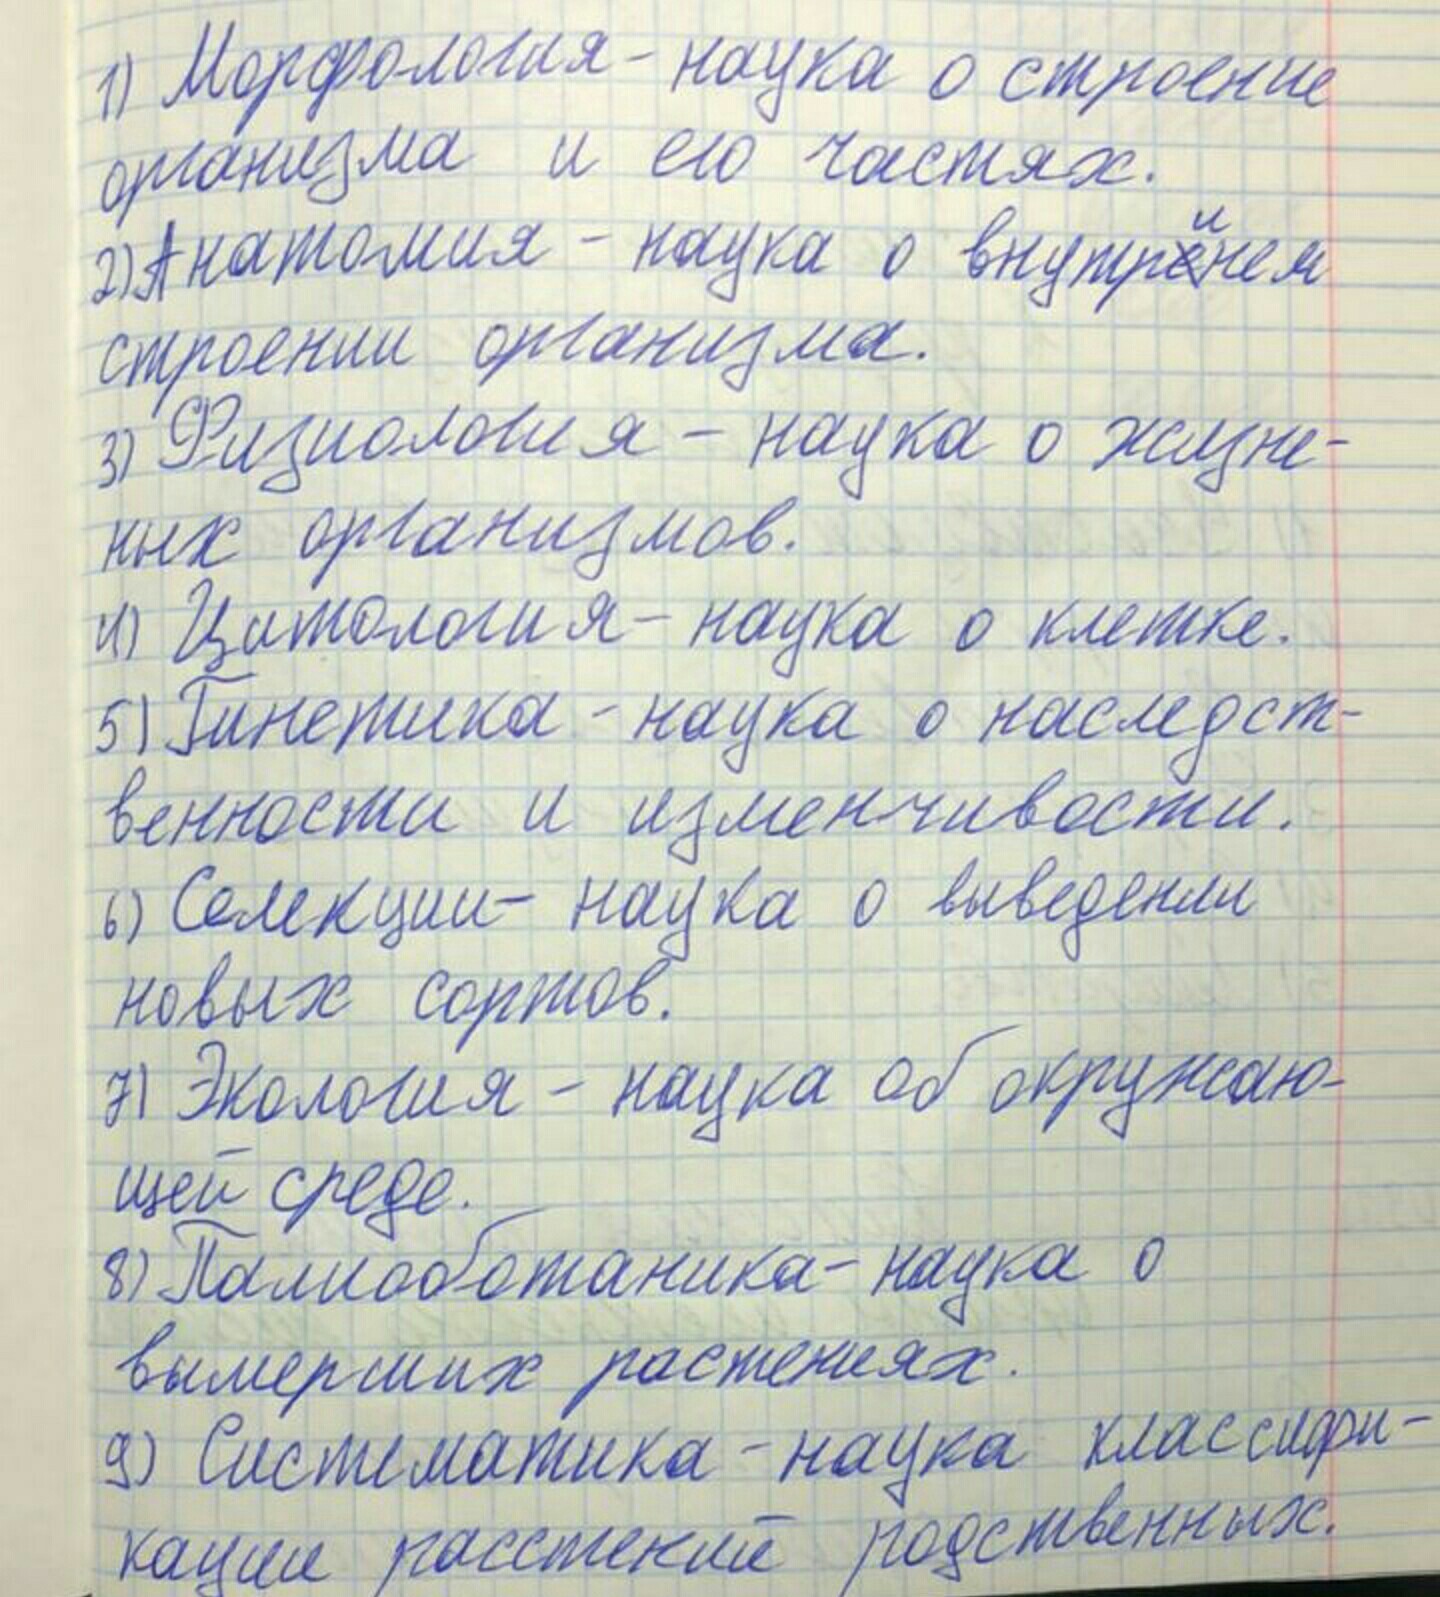 1) Морфология - наука о строение
организма и его частях.
2) Анатомия - наука о внутринем
строении организма.
3) Физиология - наука о жизне-
ных организмов.
4) Цитология - наука о клетке.
5) Гинетика - наука о наследст-
венности и изменчивости.
6) Селекции - наука о выведении
новых сортов.
7) Экология - наука об окружаю-
щей среде.
8) Палиоботаника - наука о
вымерших растениях.
9) Систематика - наука классифи-
кации расстений родственных.